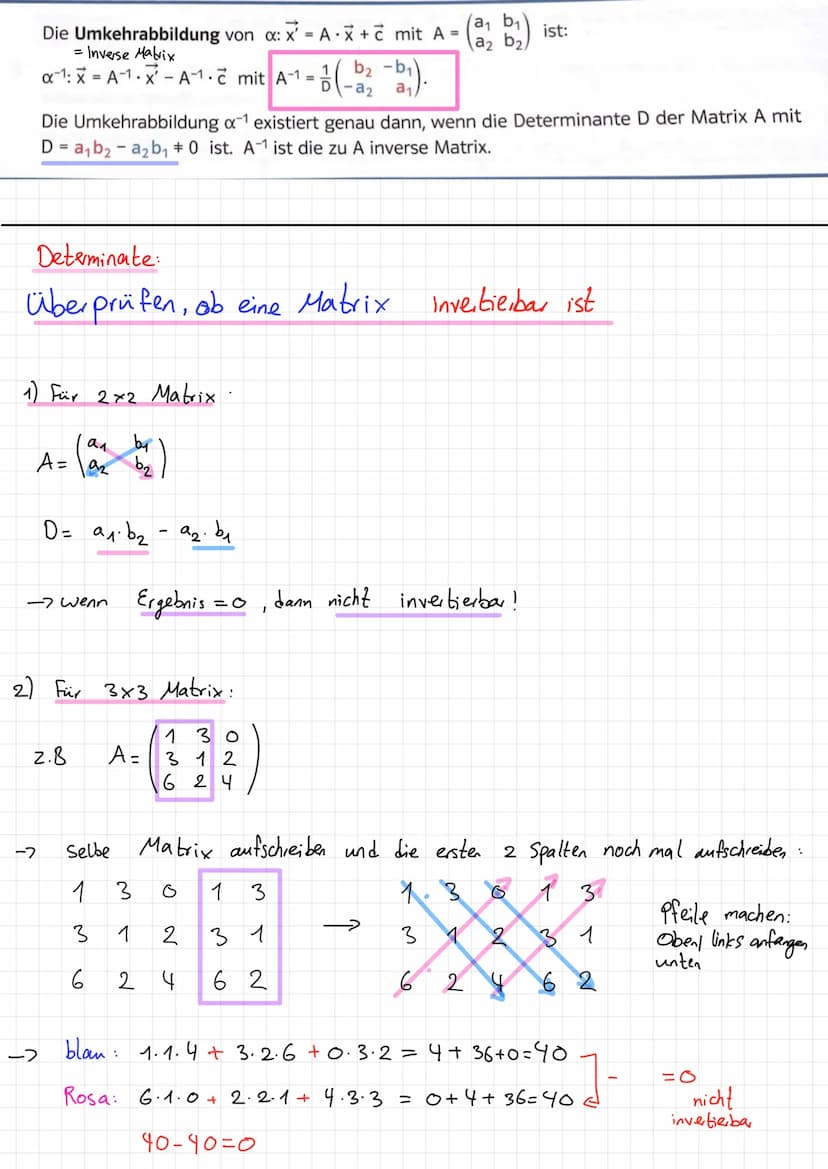 Die Umkehrabbildung von α: x⃗' = A · x⃗ + c⃗ mit A = (a₁ b₁
a₂ b₂) ist:
= Inverse Matrix
α⁻¹: x⃗ = A⁻¹ · x⃗' − A⁻¹ · c⃗ mit A⁻¹ = 1/D (b₂ −b₁
−a₂ a₁).
Die Umkehrabbildung α⁻¹ existiert genau dann, wenn die Determinante D der Matrix A mit
D = a₁b₂ − a₂b₁ ≠ 0 ist. A⁻¹ ist die zu A inverse Matrix.
Determinate:
Überprüfen, ob eine Matrix invertierbar ist
1) Für 2×2 Matrix
A = (a₁ b₁
a₂ b₂)
D = a₁·b₂ − a₂·b₁
→ wenn Ergebnis = 0, dann nicht invertierbar!
2) Für 3×3 Matrix:
z.B A = (1 3 0
3 1 2
6 2 4)
→ selbe Matrix aufschreiben und die ersten 2 Spalten noch mal aufschreiben:
1 3 0 1 3 → 1 3 0 1 3
3 1 2 3 1 3 1 2 3 1
6 2 4 6 2 6 2 4 6 2
Pfeile machen:
Oben/ links anfangen
unten
→ blau: 1·1·4 + 3·2·6 + 0·3·2 = 4 + 36+0=40
Rosa: 6·1·0 + 2·2·1 + 4·3·3 = 0+4+36=40
− =0
nicht
invertierbar
40-40=0